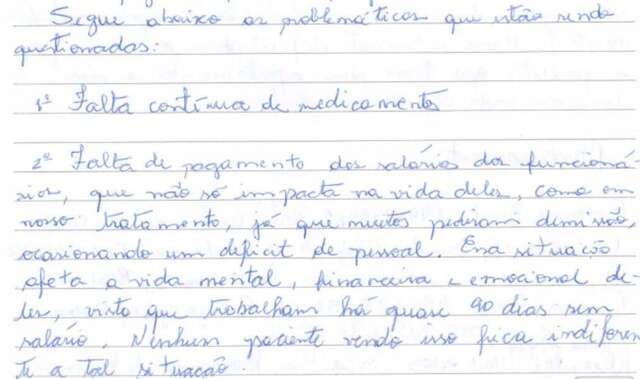 Segue abaixo as problemáticas que estão sendo
questionadas:
1ª Falta contínua de medicamentos
2ª Falta de pagamento dos salários dos funcioná
rios, que não só impacta na vida deles, como em
nosso tratamento, já que muitos pediram demissão,
ocasionando um deficit de pessoal. Essa situação
afeta a vida mental, financeira e emocional de-
les, visto que trabalham há quase 90 dias sem
salário. Nenhum paciente vendo isso fica indiferen
te a tal situação.